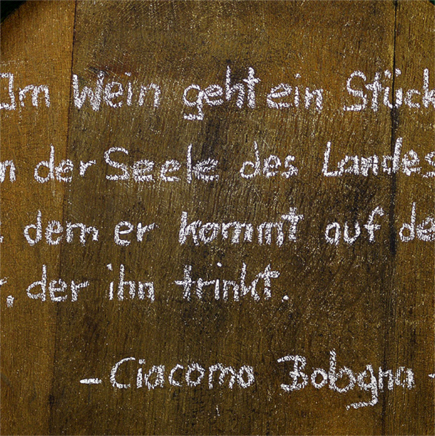 Im Wein geht ein Stück
n der Seele des Landes
dem er kommt auf de
, der ihn trinkt.
- Ciacomo Bologna -